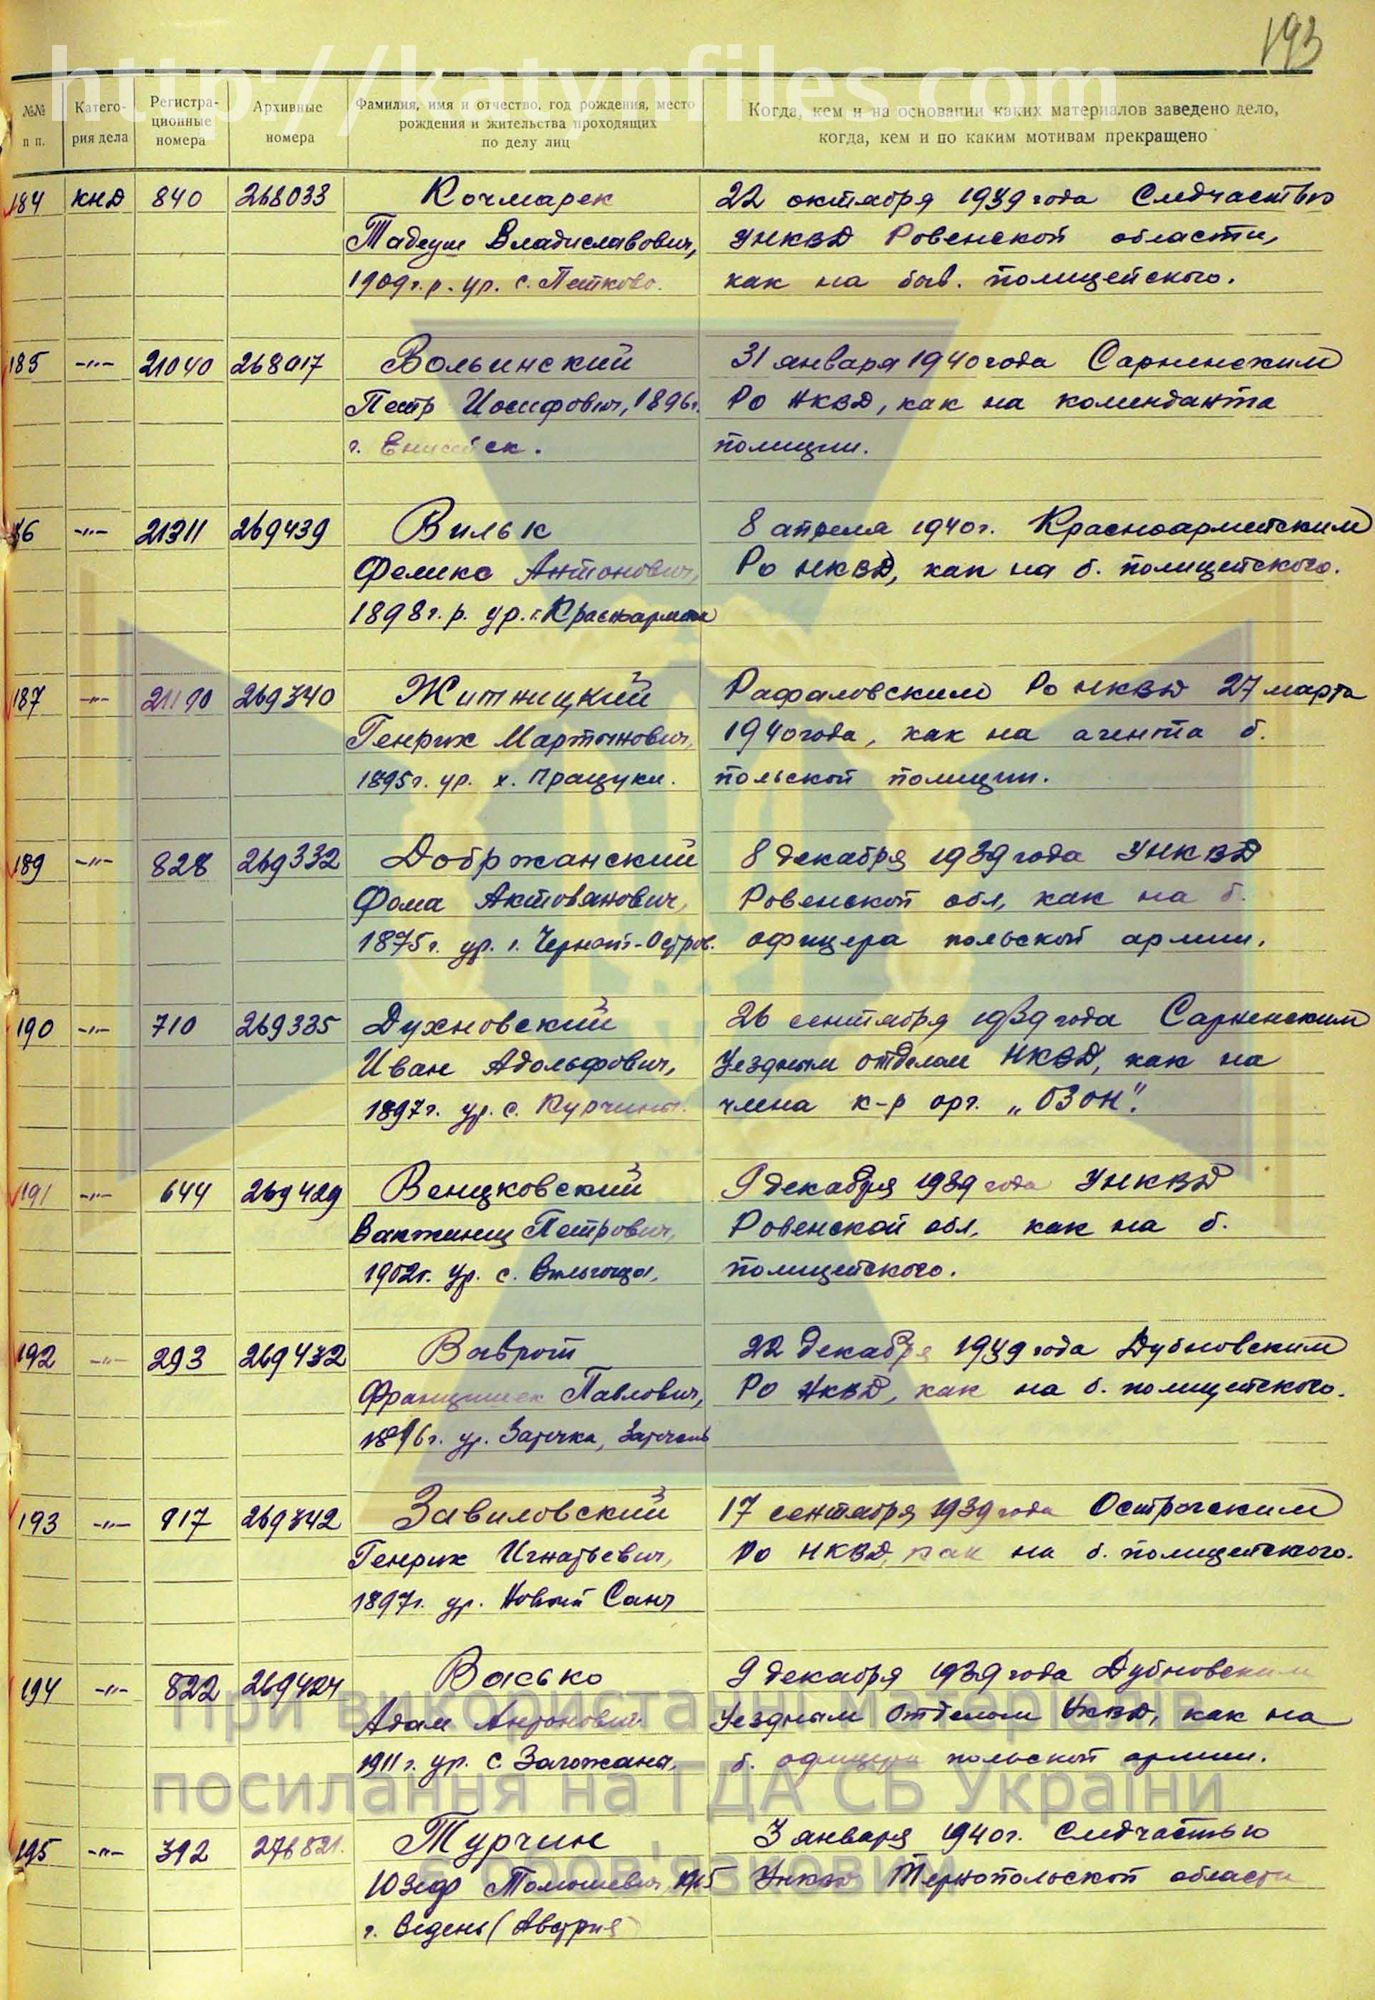 193
http://katynfiles.com
№№ п п.
Катего-
рия дела
Регистра-
ционные
номера
Архивные
номера
Фамилия, имя и отчество, год рождения, место
рождения и жительства проходящих
по делу лиц
Когда, кем и на основании каких материалов заведено дело,
когда, кем и по каким мотивам прекращено
184 КНД 840 268033 Кочмарек 22 октября 1939 года Следчастью
Тадеуш Владиславович, УНКВД Ровенской области,
1909 г.р. ур. с. как на быв. полицейского.
185 -"- 21040 268017 Волынский 31 января 1940 года Сарненским
Петр Иосифович, 1896 г. Ро НКВД, как на коменданта
г. Енисейск. полиции.
21311 269439 Вильк 8 апреля 1940 г. Красноармейским
Феликс Антонович, Ро НКВД, как на б. полицейского.
1898 г. р. ур. г.
187 -"- 21190 269340 Житницкий Рафаловским Ро НКВД 27 марта
Генрих Мартынович, 1940 года, как на агента б.
1895 г. ур. х. Пращуки. польской полиции.
189 -"- 828 269332 Добржанский 8 декабря 1939 года УНКВД
Фома Ровенской обл, как на б.
1875 г. ур. офицера польской армии.
190 -"- 710 269335 Духновский 26 сентября 1939 года Сарненским
Иван Адольфович, Уездным отделом НКВД, как на
1897 г. ур. с. члена к-р орг. „ОЗОН".
191 -"- 644 269429 Венцковский 9 декабря 1939 года УНКВД
Петрович, Ровенской обл, как на б.
1902 г. ур. с. полицейского.
192 -"- 293 269432 Ваврот 22 декабря 1939 года Дубновским
Францишек Павлович, Ро НКВД, как на б. полицейского.
ур.
193 -"- 917 269342 Завиловский 17 сентября 1939 года Острогским
Генрик Игнатьевич, Ро НКВД, как на б. полицейского.
1897 г. ур. Новый Санч
194 -"- 822 269424 Васько 9 декабря 1939 года Дубновским
Адам Антонович Уездным Отделом НКВД, как на
1911 г. ур. с. б. офицера польской армии.
195 -"- 392 276821. Турчин 3 января 1940 г. Следчастью
Юзеф Томашевич УНКВД Тернопольской области
г. Ведень (Австрия)
При використанні матеріалів
посилання на ГДА СБ України
є обов'язковим